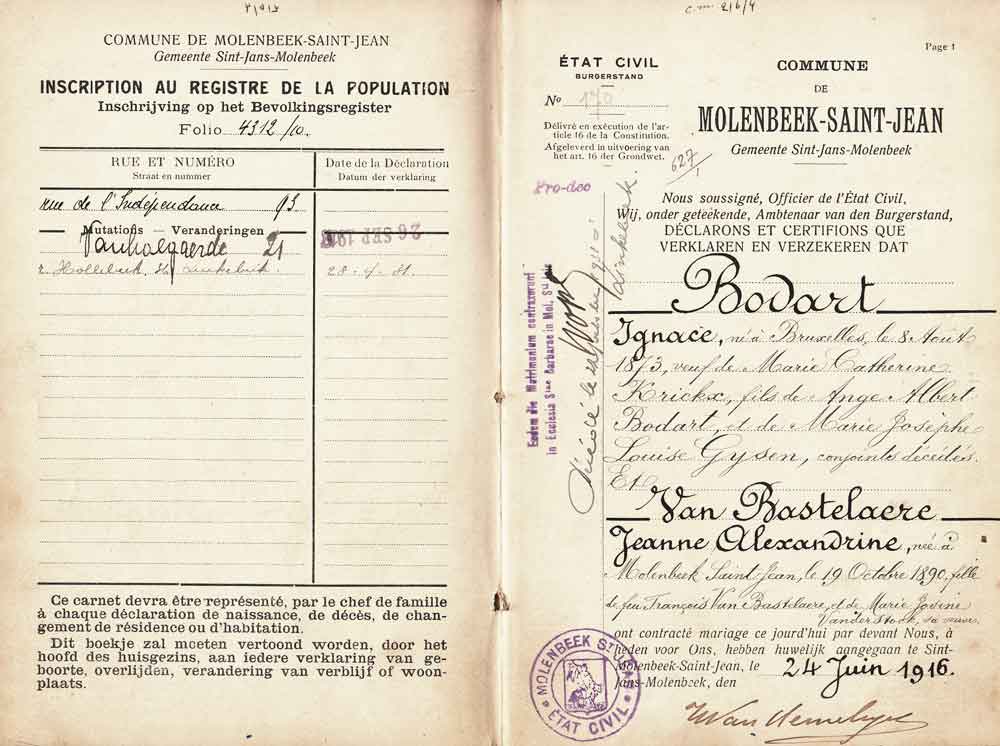 COMMUNE DE MOLENBEEK-SAINT-JEAN
Gemeente Sint-Jans-Molenbeek
INSCRIPTION AU REGISTRE DE LA POPULATION
Inschrijving op het Bevolkingsregister
Folio 4312/10.
RUE ET NUMÉRO
Straat en nummer
Date de la Déclaration
Datum der verklaring
rue de l'Indépendance 93
Mutations — Veranderingen
21
26 SEP
28-4-31.
Ce carnet devra être représenté, par le chef de famille
à chaque déclaration de naissance, de décès, de chan-
gement de résidence ou d'habitation.
Dit boekje zal moeten vertoond worden, door het
hoofd des huisgezins, aan iedere verklaring van ge-
boorte, overlijden, verandering van verblijf of woon-
plaats.
Page 1
ÉTAT CIVIL
BURGERSTAND
No 170
Délivré en exécution de l'ar-
ticle 16 de la Constitution.
Afgeleverd in uitvoering van
het art. 16 der Grondwet.
627
COMMUNE
DE
MOLENBEEK-SAINT-JEAN
Gemeente Sint-Jans-Molenbeek
Pro-deo
Eodem die Matrimonium contraxerunt
in Ecclesia Stae Barbarae in Mol. Sti Jois
Nous soussigné, Officier de l'État Civil,
Wij, onder geteekende, Ambtenaar van den Burgerstand,
DÉCLARONS ET CERTIFIONS QUE
VERKLAREN EN VERZEKEREN DAT
Bodart
Ignace, né à Bruxelles, le 8 Août
1873, veuf de Marie Catherine
Krickx, fils de Ange Albert
Bodart, et de Marie Josèphe
Louise Gysen, conjoints décédés.
Et
Van Bastelaere
Jeanne Alexandrine, née à
Molenbeek Saint-Jean, le 19 Octobre 1890, fille
de feu François Van Bastelaere, et de Marie Jovine
Vander Stock, sa veuve
ont contracté mariage ce jourd'hui par devant Nous, à
heden voor Ons, hebben huwelijk aangegaan te Sint-
Molenbeek-Saint-Jean, le
Jans-Molenbeek, den
24 Juin 1916.
MOLENBEEK ST JEAN
ÉTAT CIVIL